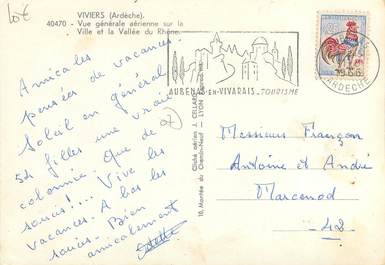 10€
VIVIERS (Ardèche).
40470 - Vue générale aérienne sur la
Ville et la Vallée du Rhône.
Amicales
pensées de vacances
Soleil en général
54 filles une vraie
colonnie. Que de
soucis!... Vive les
vacances. A bas les
soucis. Bien
amicalement
Cliché aérien
CELLARD
LYON
18, Montée du Chemin-Neuf
AUBENAS-EN-VIVARAIS-TOURISME
ARDECHE
Messieurs Françon
Antoine et André
Marcenod
42